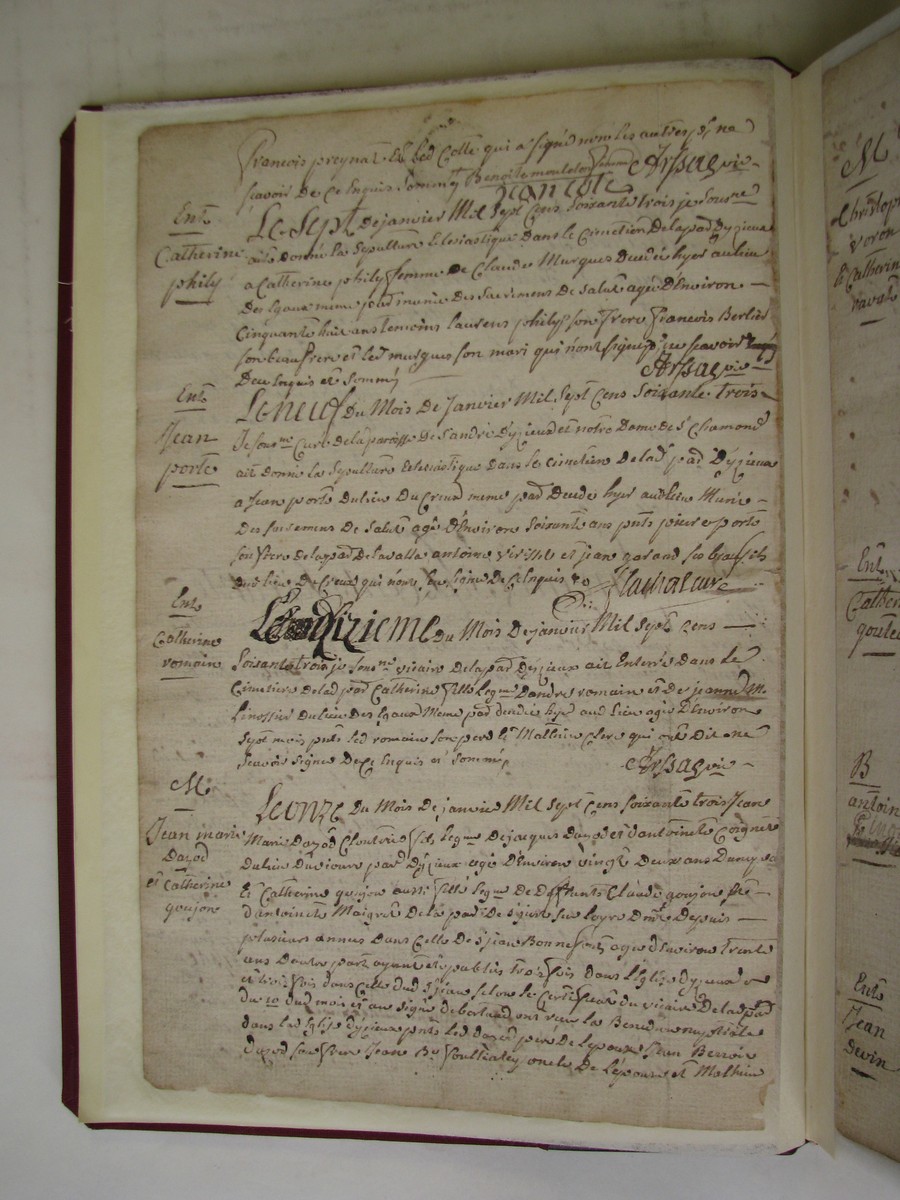 françois preynat et led Colle qui a signé non les autres p^r ne
scavoir De ce Enquis et sommés Benoit moulelon
jean colle Arssac vic
Ent
Catherine
phily
Le sept De janvier Mil sept Cens soixante trois je sousné
ait donné la sepulture Eclesiastique Dans le cimetiere De la pard Dyzieux
a Catherine phily femme De Claude Murgues Decedée hyer au lieu
Des Egaux meme pard munie Des sacremens De salut agée D'Environ
Cinquante huit ans temoins laurens phily son frere françois Berlier
son beau frere et led murgues son mari qui n'ont signé p^r ne scavoir
De ce Enquis et sommés
Arssac vic
Ent
Jean
porte
Le neuf Du Mois De Janvier Mil sept Cens soixante trois
Je sousné Curé De la paroisse De s^t andré Dyzieux et notre Dame De s^t Chamond
ait Donné la sepulture Eclesiastique Dans le cimetiere De lad pard Dyzieux
a Jean porte Du lieu Du Creux meme pard Decedé hyer aud lieu Munie
Des sacremens De salut agé D'Environ soixante ans pnts porte
son frere De la pard De lavalla antoine et jean garand
dud lieu De Creux qui n'ont sceu signé De ce Enquis
Flachat curé
Ent
Catherine
romain
Le dizieme Du Mois De janvier Mil sept Cens
Soixante trois je sousné vicaire De la pard Dyzieux ait Enterré Dans le
Cimetiere De lad pard Catherine fille legme D'andré romain et De jeanne M.
Linossier Du lieu Des Egaux Meme pard Decedée hyer aud lieu agée D'Environ
Sept mois pnts led romain son pere et Mathieu Clere qui ont Dit ne
scavoir signé De ce Enquis et sommés
Arssac vic
M
Jean marie
Dazod
et Catherine
goujon
Le onze Du Mois De janvier Mil sept Cens soixante trois Jean
Marie Dazod Cloutrier fils legme De jacques Dazod et D'antoinette Coignet
Du lieu pard Dyzieux agé D'Environ vingt Deux ans D'une part
Et Catherine goujon aussi fille legme De Deffunts Claude goujon et
D'antoinette Maigret De la pard De s^t just sur loyre Dmt Depuis
plusieurs années Dans celle De s^t jean Bonnefont agée D'Environ trente
ans D'autre part ayant été publiés trois fois Dans l'Eglise Dyzieux
et trois fois Dans celle Dud s^t jean selon le Certificat Du vicaire De lad pard
Du 10 Dud mois ont recu la Benediction nuptiale
Dans lad Eglise Dyzieux pnts led Dazod pere De l'epoux
Dazod son frere Jean B^te oncle De l'epouse et Mathieu
M
Christop
voron
et Catherin
Ent
Cather
goute
B
antoin
Ent
Jean
devin